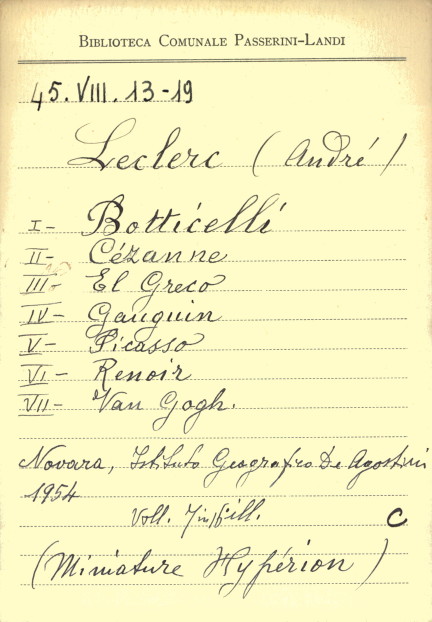 BIBLIOTECA COMUNALE PASSERINI-LANDI
45.VIII.13-19
Leclerc (André)
I- Botticelli
II- Cézanne
III- El Greco
IV- Gauguin
V- Picasso
VI- Renoir
VII- Van Gogh.
Novara, Istituto Geografico De Agostini
1954
Voll. 7 in 16° ill. C
(Miniature Hypérion)